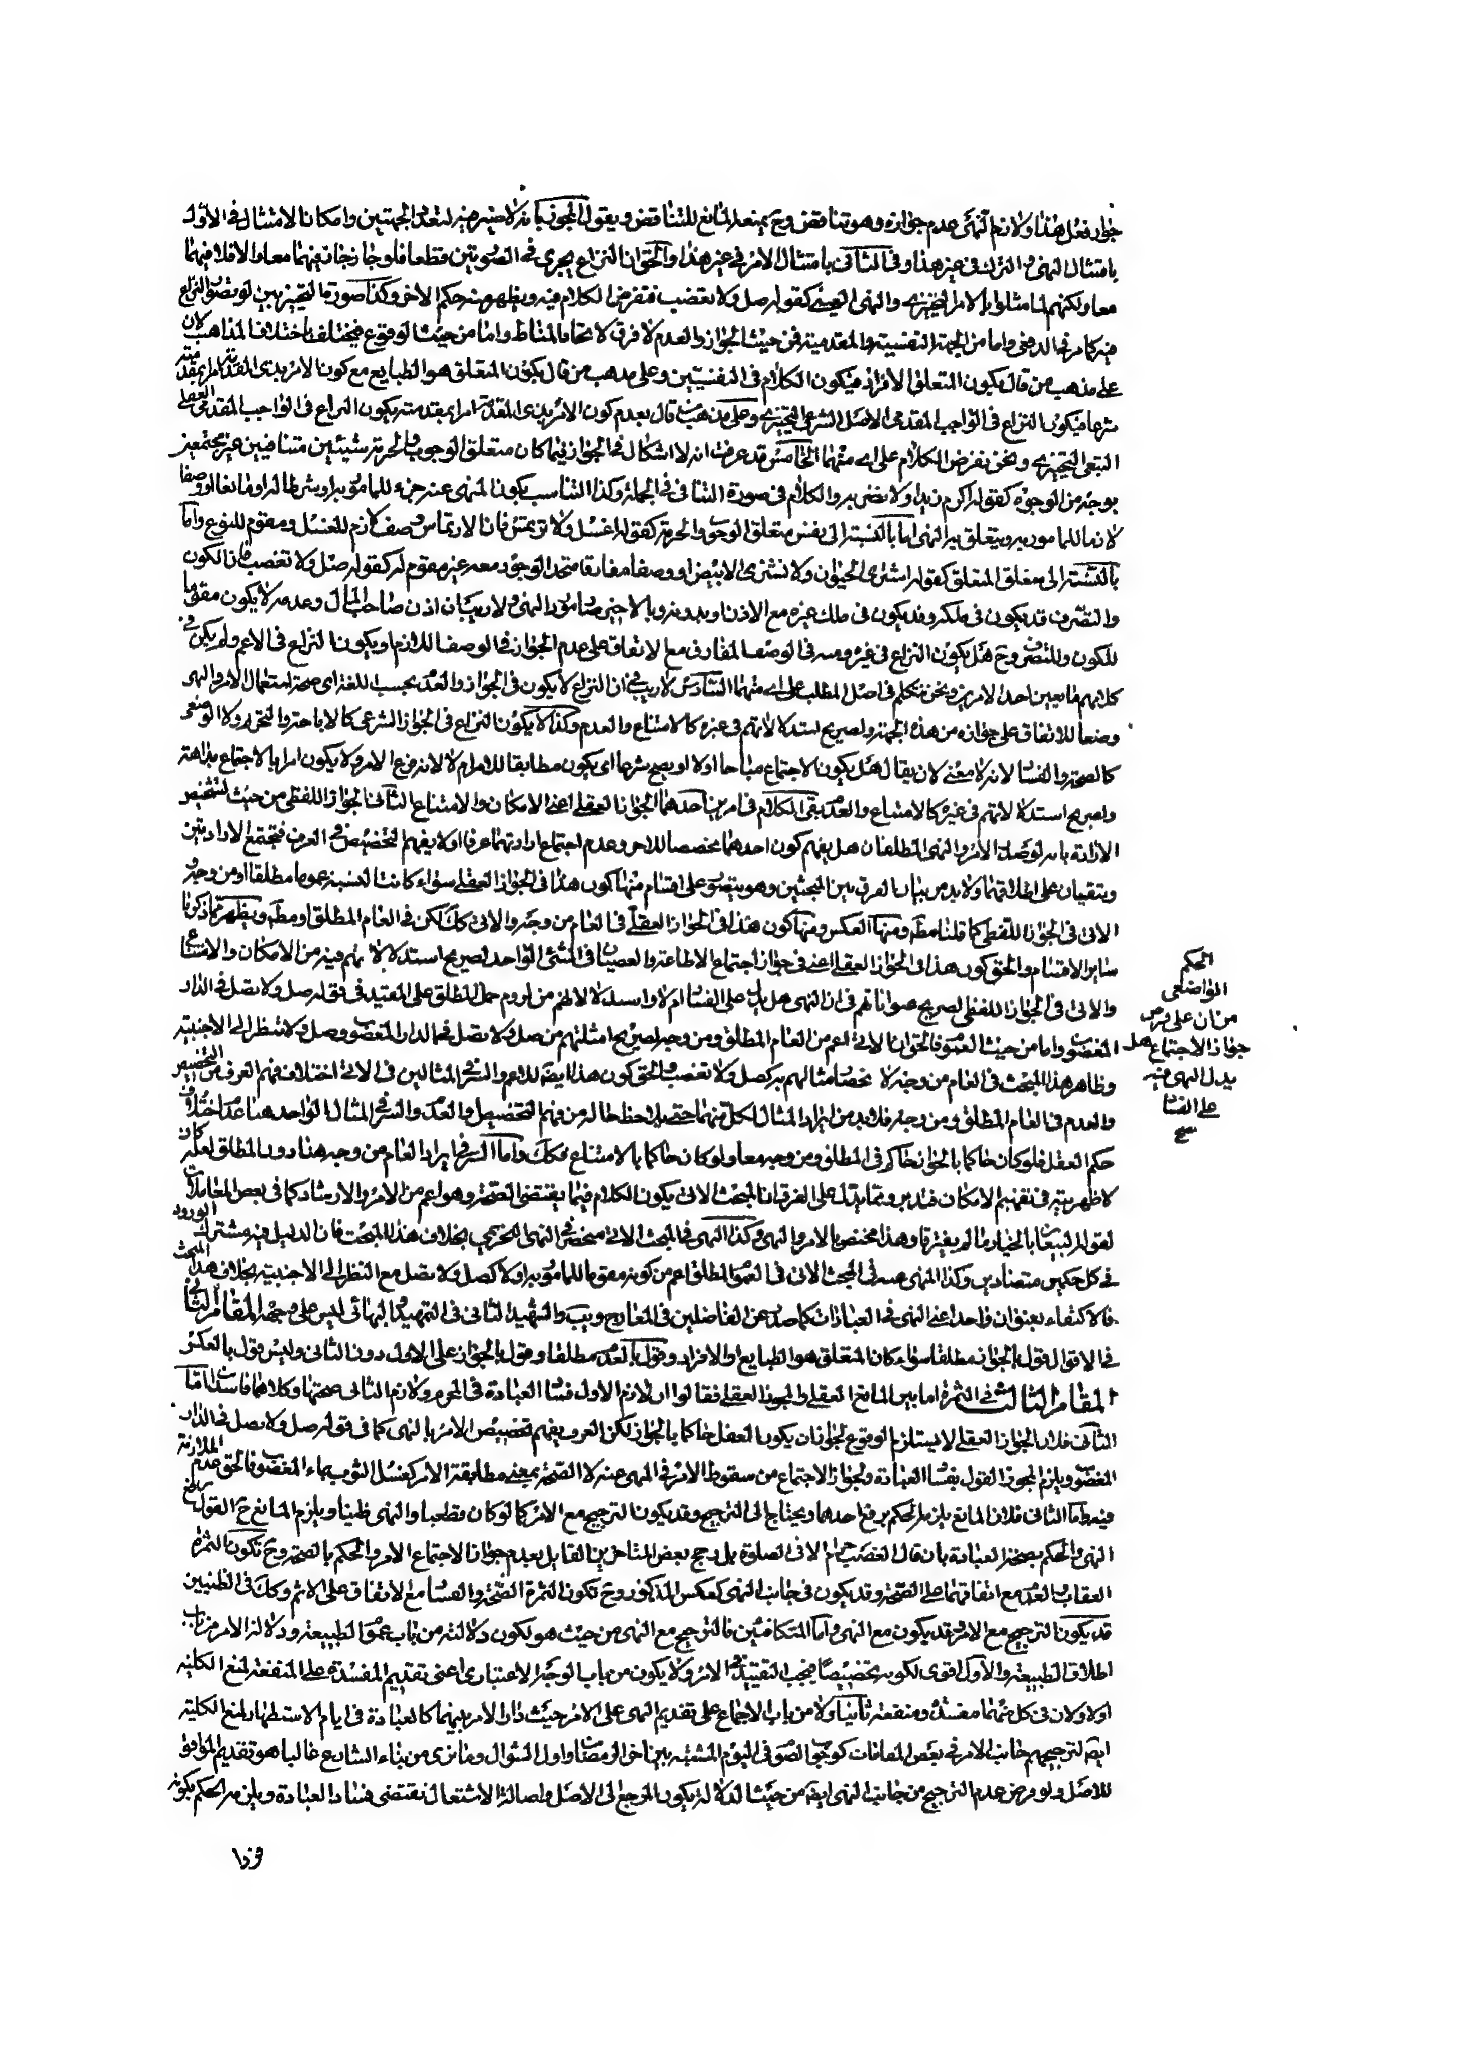 جواز فعل هذا ولازم النهى عدم جوازه وهو تناقض وح يمنعه المانع للتناقض ويقول المجوز بانه لا ضير فيه لتعدد الجهتين وامكان الامتثال فى الاول
بامتثال النهى والترك فى غير هذا وفى الثانى بامتثال الامر فى غير هذا والحق ان النزاع يجرى فى الصورتين قطعا فلو جاز جاز فيهما معا والا فلا فيهما
معا ولكنهم لما مثلوا بالامر التخييرى والنهى العينى كقوله صل ولا تغصب فنفرض الكلام فيه ويظهر منه حكم الاخر وكذا صورة التخييريين لو تصور النزاع
فيه كما مر فى الدفعى واما من الجهة النفسية والمقدمية فمن حيث الجواز والعدم لا فرق لاتحاد المناط واما من حيث الوقوع فيختلف باختلاف المذاهب لان
على مذهب من قال بكون المتعلق الافراد فيكون الكلام فى النفسيين وعلى مذهب من قال بكون المتعلق هو الطبايع مع كون الامر بذى المقدمة امرا بمقدمته
شرعا فيكون النزاع فى الواجب المقدمى الاصل الشرعى التخييرى وعلى مذهب من قال بعدم كون الامر بذى المقدمة امرا بمقدمته يكون النزاع فى الواجب المقدمى العقلى
التبعى التخييرى ونحن نفرض الكلام على اى منهما الخامس قد عرفت انه لا اشكال فى الجواز فيما كان متعلق الوجوب والحرمة شيئين متنافيين غير مجتمعين
بوجه من الوجوه كقوله اكرم زيدا ولا تضربه والكلام فى صورة التنافى فى الجملة وكذا التناسب بكون المنهى عنه جزء للمامور به او شرطا له او مانعا او وصفا
لازما للمامور به ويتعلق به النهى اما بالنسبة الى نفس متعلق الوجوب والحرمة كقوله اغسل ولا ترتمس فان الارتماس وصف لازم للغسل ومقوم للنوع واما
بالنسبة الى متعلق المتعلق كقوله اشترى الحيوان ولا تشترى الابيض او وصفا مفارقا متحد الوجود معه غير مقوم له كقوله صل ولا تغصب فان الكون
والتصرف قد يكون فى ملكه وقد يكون فى ملك غيره مع الاذن او بدونه وبالاخير صار مورد النهى ولا ريب ان اذن صاحب المال وعدمه لا يكون مقوما
للكون وللتصرف وح هل يكون النزاع فى غيره ومنه فى الوصف المفارق مع الاتفاق على عدم الجواز فى الوصف اللازم او يكون النزاع فى الاعم ولم يكن فى
كلماتهم ما يعين احد الامرين ونحن نتكلم فى اصل المطلب على اى منهما السادس لا ريب فى ان النزاع لا يكون فى الجواز والعدم بحسب اللغة اى صحة استعمال الامر والنهى
وضعا للاتفاق على جوازه من هذه الجهة ولصريح استدلالاتهم فى غيره كالامتناع والعدم وكذا لا يكون النزاع فى الجواز الشرعى كالاباحة والتحريم ولا الوضعى
كالصحة والفساد لانه لا معنى لان يقال هل يكون الاجتماع مباحا او لا او يصح شرعا اى يكون مطابقا للامر ام لا لانه فرع الامر ولا يكون امرا بالاجتماع بداهة
ولصريح استدلالاتهم فى غيره كالامتناع والعدم بقى الكلام فى امرين احدهما الجواز العقلى اعنى الامكان والامتناع الثانى الجواز اللفظى من حيث تشخيص
الارادة بانه لو حصل الامر والنهى المطلقان هل يفهم كون احدهما مخصصا للاخر وعدم اجتماع ارادتهما عرفا او لا يفهم التخصيص فى العرف فتجتمع الارادتين
ويبقيان على اطلاقهما ولا بد من بيان الفرق بين المبحثين وهو يتصور على اقسام منها كون هذا فى الجواز العقلى سواء كانت النسبة عموما مطلقا او من وجه و
الاتى فى الجواز اللفظى كما قلنا مطم ومنها العكس ومنها كون هذا فى الجواز العقلى فى العام من وجه والاتى كك لكن فى العام المطلق او مطم ويظهر مما ذكرنا
ساير الاقسام والحق كون هذا فى الجواز العقلى اعنى فى جواز اجتماع الاطاعة والعصيان فى الشئ الواحد لصريح استدلالاتهم فيه من الامكان والامتناع
والاتى فى الجواز اللفظى لصريح عنواناتهم فى ان النهى هل يدل على الفساد ام لا واستدلالاتهم من لزوم حمل المطلق على المقيد فى قوله صل ولا تصل فى الدار
المغصوب واما من حيث العموم فالحق ان الاتى اعم من العام المطلق ومن وجه لصريح امثلتهم من صل ولا تصل فى الدار المغصوب وصل ولا تنظر الى الاجنبية
وظاهر هذا المبحث فى العام من وجه لانحصار امثالهم به كصل ولا تغصب والحق كون هذا ايضا للاعم والسر فى المثالين فى الاتى اختلاف فهم العرف من التخصيص
والعدم فى العام المطلق ومن وجه فلا بد من ايراد المثال لكل منهما حتى يلاحظ حاله من فهم التخصيص والعدم والسر فى المثال الواحد هنا عدم اختلاف
حكم العقل فلو كان حاكما بالجواز حاكم فى المطلق ومن وجه معا ولو كان حاكما بالامتناع فكك واما السر فى ايراد العام من وجه هنا دون المطلق لعله كان
لاظهريته فى تفهيم الامكان فتدبر ومما يدل على الفرق ان المبحث الاتى يكون الكلام فيما يقتضى الصحة وهو اعم من الامر والارشاد كما فى بعض المعاملات
لقوله البيعان بالخيار ما لم يفترقا وهذا مختص بالامر والنهى وكذا النهى فى المبحث الاتى منحصر فى النهى التحريمى بخلاف هذا المبحث فان الدليل فيه مشترك الورود
فى كل حكمين متضادين وكذا المنهى عنه فى المبحث الاتى فى العموم المطلق اعم من كونه مقوما للمامور به او لا كصل ولا تصل مع النظر الى الاجنبية بخلاف هذا المبحث
فالاكتفاء بعنوان واحد اعنى النهى فى العبادات كما صدر عن الفاضلين فى المعارج ويب والشهيد الثانى فى التمهيد والبهائى ليس على وجهه المقام الثانى
فى الاقوال قول بالجواز مطلقا سواء كان المتعلق هو الطبايع او الافراد وقول بالعدم مطلقا وقول بالجواز على الاول دون الثانى وليس قول بالعكس
المقام الثالث فى الثمرة اما بين المانع العقلى والمجوز العقلى فقالوا ان لازم الاول فساد العبادة فى المحرم ولازم الثانى صحتها وكلاهما فاسدان اما
الثانى فلان الجواز العقلى لا يستلزم الوقوع لجواز ان يكون العقل حاكما بالجواز لكن العرف يفهم تخصيص الامر بالنهى كما فى قوله صل ولا تصل فى الدار
المغصوب ويلزم المجوز القول بفساد العبادة ولجواز الاجتماع من سقوط الامر فى المنهى عنه لا الصحة بمعنى مطابقة الامر كغسل الثوب بماء المغصوب فالحق عدم الملازمة
فيه واما الثانى فلان المانع يلزمه الحكم برفع احدهما ويحتاج الى الترجيح وقد يكون الترجيح مع الامر كما لو كان قطعيا والنهى ظنيا ويلزم المانع ح القول برفع
النهى والحكم بصحة العبادة بان قال الغصب حرام الا فى الصلوة بل رجح بعض المتاخرين القايل بعدم جواز الاجتماع الامر والحكم بالصحة وح تكون الثمرة
العقاب والعدم مع اتفاقهما على الصحة وقد يكون فى جانب النهى كعكس المذكور وح تكون الثمرة الصحة والفساد مع الاتفاق على الاثم وكك فى الظنيين
قد يكون الترجيح مع الامر وقد يكون مع النهى واما المتكافئين فالترجيح مع النهى من حيث هو لكون دلالته من باب عموم الطبيعة ودلالة الامر من باب
اطلاق الطبيعة والاول اقوى لكونه تخصيصا فيجب التقييد فى الامر ولا يكون من باب الوجه الاعتبارى اعنى تقديم المفسدة على المنفعة لمنع الكلية
اولا ولان فى كل منهما مفسدة ومنفعة ثانيا ولا من باب الاجماع على تقديم النهى على الامر حيث دار الامر بينهما كالعبادة فى ايام الاستظهار لمنع الكلية
ايضا لترجيحهم جانب الامر فى بعض المقامات كوجوب الصوم فى اليوم المشتبه بين اخر الرمضان واول الشوال وما نرى من بناء الشارع غالبا هو تقديم الموافق
للاصل ولو فرض عدم الترجيح من جانب النهى ايضا من حيث الدلالة يكون المرجع الى الاصل واصالة الاشتغال تقتضى فساد العبادة ويلزمه الحكم بكونه
الحكم
الواضعى
من ان على فرض
جواز الاجتماع هل
يدل النهى فيه
على الفساد
صح
فردا